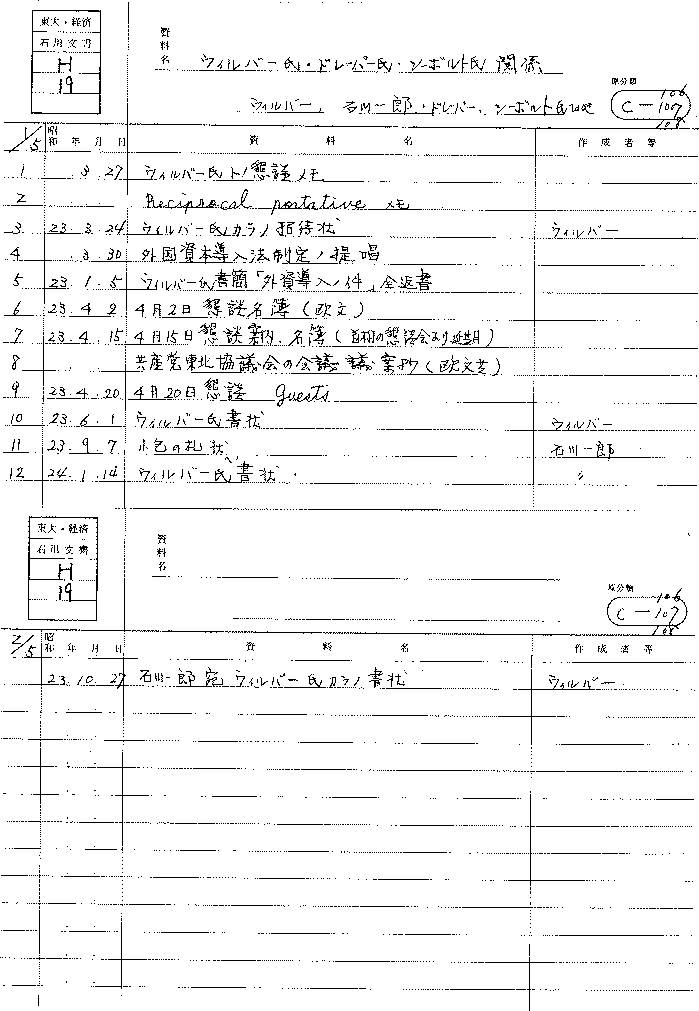 東大・経済
石川文書
H
19
資料名 ウィルバー氏・ドレーパー氏・シーボルト氏 関係
ウィルバー、石川一郎・ドレーパー、シーボルト氏
原分類 C-106 107 108
1/5 昭和 年 月 日 資 料 名 作 成 者 等
1 3 27 ウィルバー氏トノ懇談メモ
2 Reciprocal portative メモ
3 23. 3. 24 ウィルバー氏カラノ招待状 ウィルバー
4 3. 30 外国資本導入法制定ノ提唱
5 23. 1. 5 ウィルバー氏書簡「外資導入ノ件」全返書
6 23. 4 2 4月2日懇談名簿(欧文)
7 23. 4. 15 4月15日懇談案内、名簿(首相の懇話会より
8 共産党東北協議会の会議議案抄(欧文共)
9 23. 4. 20 4月20日懇談 Guests
10 23. 6. 1 ウィルバー氏書状 ウィルバー
11 23. 9. 7 小包の札状 石川一郎
12 24. 1. 14 ウィルバー氏へ書状 〃
東大・経済
石川文書
H
19
資料名
原分類 C-106 107 108
2/5 昭和 年 月 日 資 料 名 作 成 者 等
23. 10. 27 石川一郎宛ウィルバー氏カラノ書状 ウィルバー